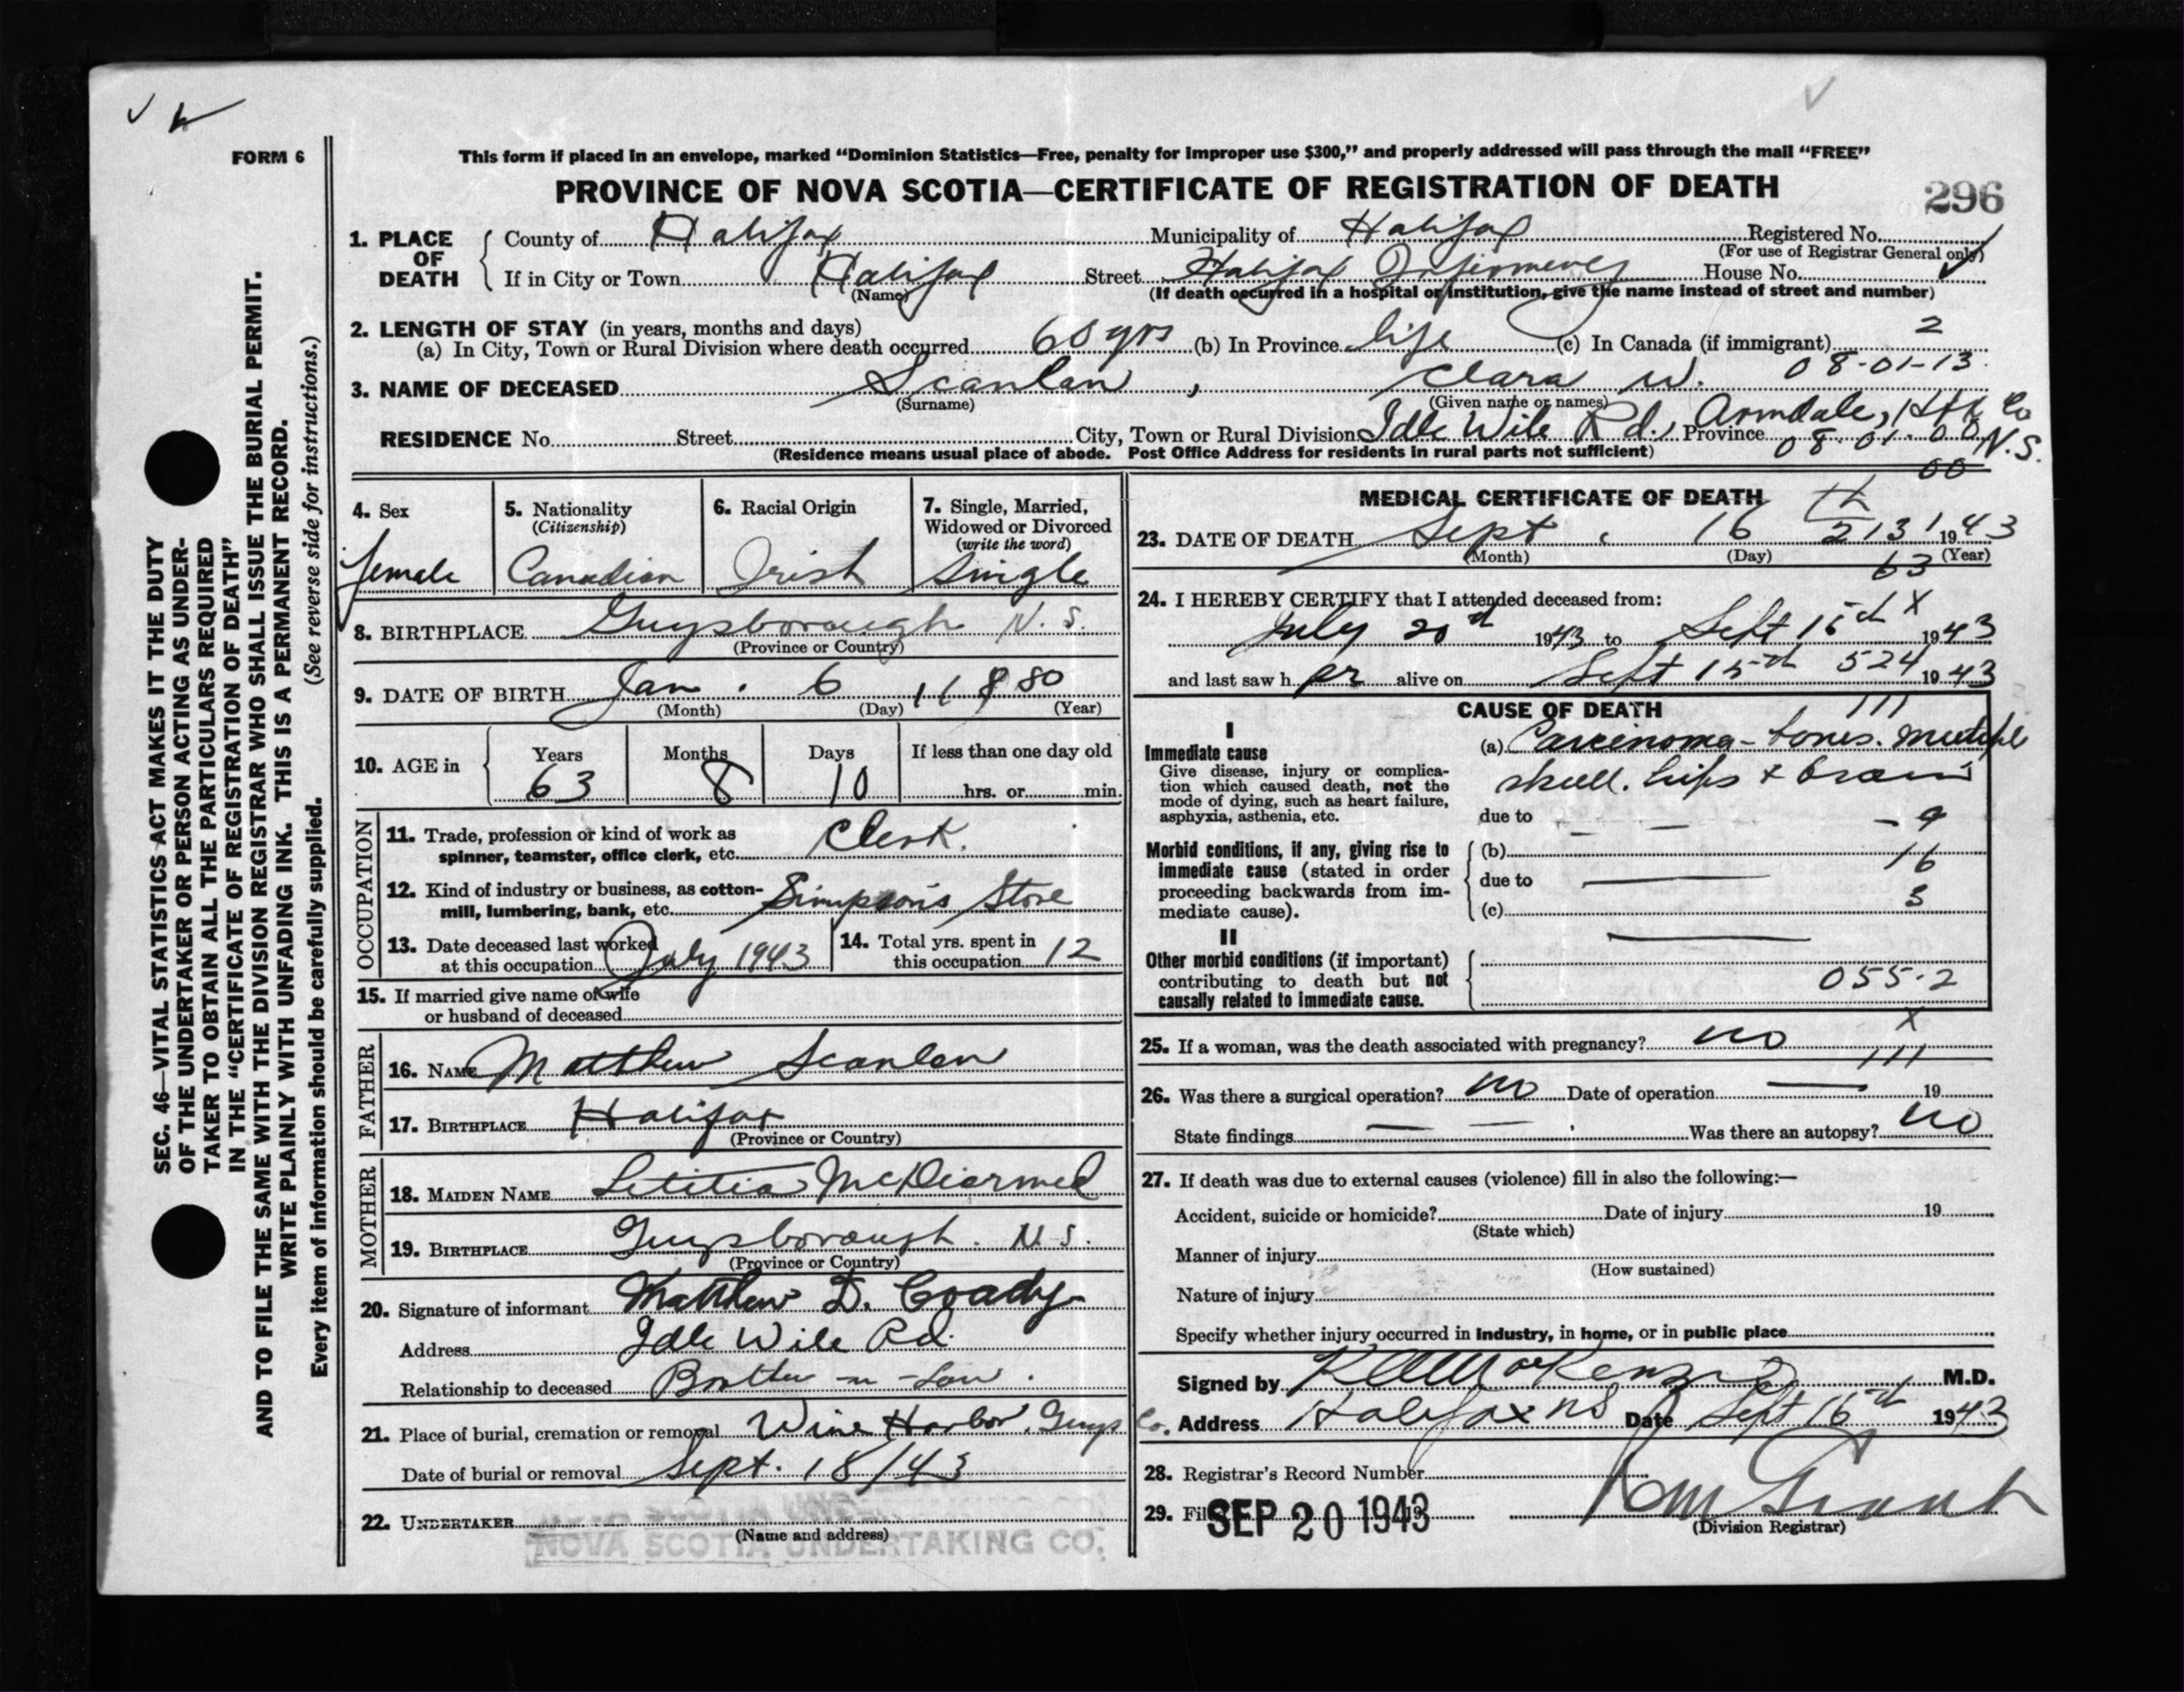 FORM 6
This form if placed in an envelope, marked "Dominion Statistics—Free, penalty for improper use $300," and properly addressed will pass through the mail "FREE"
PROVINCE OF NOVA SCOTIA—CERTIFICATE OF REGISTRATION OF DEATH
296
SEC. 46—VITAL STATISTICS ACT MAKES IT THE DUTY
OF THE UNDERTAKER OR PERSON ACTING AS UNDER-
TAKER TO OBTAIN ALL THE PARTICULARS REQUIRED
IN THE "CERTIFICATE OF REGISTRATION OF DEATH"
AND TO FILE THE SAME WITH THE DIVISION REGISTRAR WHO SHALL ISSUE THE BURIAL PERMIT.
WRITE PLAINLY WITH UNFADING INK. THIS IS A PERMANENT RECORD.
Every item of information should be carefully supplied. (See reverse side for instructions.)
1. PLACE OF DEATH
County of Halifax Municipality of Halifax Registered No.
(For use of Registrar General only)
If in City or Town Halifax Street Halifax Infirmary House No.
(Name) (If death occurred in a hospital or institution, give the name instead of street and number)
2. LENGTH OF STAY (in years, months and days)
(a) In City, Town or Rural Division where death occurred 60 yrs (b) In Province life (c) In Canada (if immigrant) 2
08-01-13
3. NAME OF DECEASED Scanlan, Clara W.
(Surname) (Given name or names)
RESIDENCE No. Street City, Town or Rural Division Idle Wile Rd., Armdale, Hfx Co Province N.S.
08.01.00
00
(Residence means usual place of abode. Post Office Address for residents in rural parts not sufficient)
4. Sex female
5. Nationality (Citizenship) Canadian
6. Racial Origin Irish
7. Single, Married, Widowed or Divorced (write the word) Single
8. BIRTHPLACE Guysborough N.S.
(Province or Country)
9. DATE OF BIRTH Jan. 6 1880
(Month) (Day) (Year)
10. AGE in Years 63 Months 8 Days 10 If less than one day old hrs. or min.
OCCUPATION
11. Trade, profession or kind of work as
spinner, teamster, office clerk, etc. Clerk.
12. Kind of industry or business, as cotton-
mill, lumbering, bank, etc. Simpson's Store
13. Date deceased last worked
at this occupation July 1943
14. Total yrs. spent in
this occupation 12
15. If married give name of wife
or husband of deceased
FATHER
16. NAME Matthew Scanlan
17. BIRTHPLACE Halifax
(Province or Country)
MOTHER
18. MAIDEN NAME Letitia McDiarmed
19. BIRTHPLACE Guysborough. N.S.
(Province or Country)
20. Signature of informant Matthew D. Coady
Address Idle Wile Rd.
Relationship to deceased Brother-in-Law.
21. Place of burial, cremation or removal Wine Harbor, Guys Co.
Date of burial or removal Sept. 18/43
22. UNDERTAKER
(Name and address)
NOVA SCOTIA UNDERTAKING CO.
MEDICAL CERTIFICATE OF DEATH
23. DATE OF DEATH Sept. 16 th 1943
213
(Month) (Day) (Year)
63
24. I HEREBY CERTIFY that I attended deceased from:
July 20 1943 to Sept 15th 1943
X
and last saw her alive on Sept 15th 1943
524
CAUSE OF DEATH
111
I
Immediate cause
Give disease, injury or complica-
tion which caused death, not the
mode of dying, such as heart failure,
asphyxia, asthenia, etc.
(a) Carcinoma - bones. multiple
skull. hips + brain
due to
9
Morbid conditions, if any, giving rise to
immediate cause (stated in order
proceeding backwards from im-
mediate cause).
(b)
16
due to
(c)
3
II
Other morbid conditions (if important)
contributing to death but not
causally related to immediate cause.
055.2
X
25. If a woman, was the death associated with pregnancy? no
111
26. Was there a surgical operation? no Date of operation 19
State findings Was there an autopsy? no
27. If death was due to external causes (violence) fill in also the following:—
Accident, suicide or homicide? Date of injury 19
(State which)
Manner of injury
(How sustained)
Nature of injury
Specify whether injury occurred in industry, in home, or in public place
Signed by MacKenzie M.D.
Address Halifax NS Date Sept 16th 1943
28. Registrar's Record Number
29. Filed SEP 20 1943
(Division Registrar)